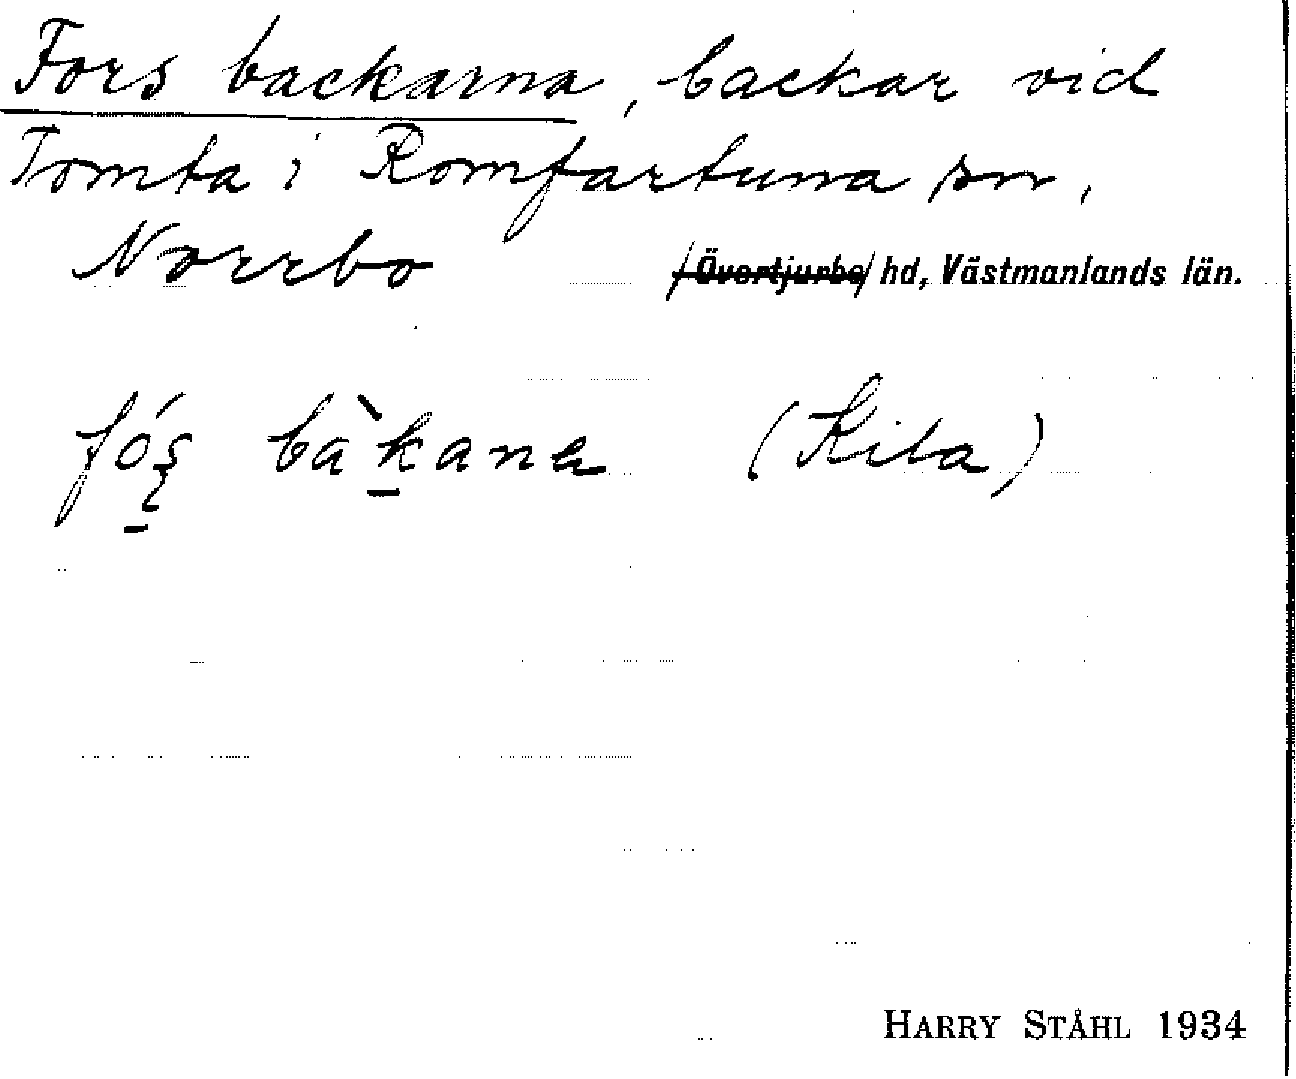 Fors backarna, backar vid
Tomta i Romfartuna sn,
Norrbo /Övertjurbo/ hd, Västmanlands län.
fó̱ʂ bàḵana (Kila)
HARRY STÅHL 1934